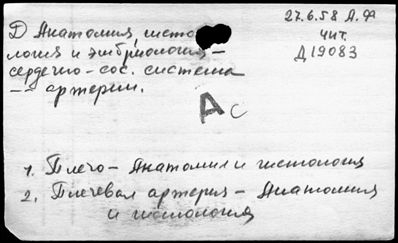 Д Анатомия, гисто
27.6.58 А.Ф
логия и эмбриология –
чит.
Д19083
сердечно-сос. система
–– артерии.
Ас
1. Плечо – Анатомия и гистология
2. Плечевая артерия – Анатомия
и гистология